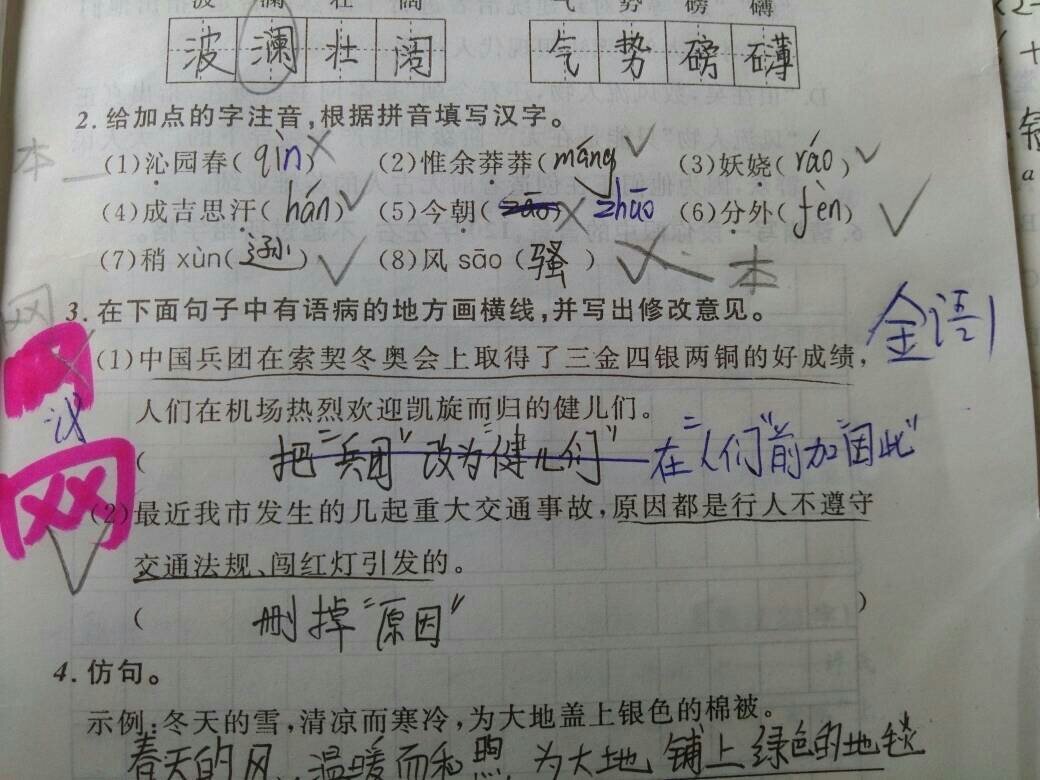 波 澜 壮 阔 气 势 磅 礴
波 澜 壮 阔 气 势 磅 礴
2. 给加点的字注音,根据拼音填写汉字。
本
(1)沁园春(qìn) (2)惟余莽莽(máng) (3)妖娆(ráo)
(4)成吉思汗(hán) (5)今朝(zāo) zhāo (6)分外(fèn)
(7)稍 xùn(逊) (8)风 sāo(骚) 本
网
3. 在下面句子中有语病的地方画横线,并写出修改意见。
(1)中国兵团在索契冬奥会上取得了三金四银两铜的好成绩,
人们在机场热烈欢迎凯旋而归的健儿们。
(把“兵团”改为“健儿们” 在“人们”前加“因此”
(2)最近我市发生的几起重大交通事故,原因都是行人不遵守
交通法规、闯红灯引发的。
(删掉“原因”)
4. 仿句。
示例:冬天的雪,清凉而寒冷,为大地盖上银色的棉被。
春天的风,温暖而和煦,为大地铺上绿色的地毯